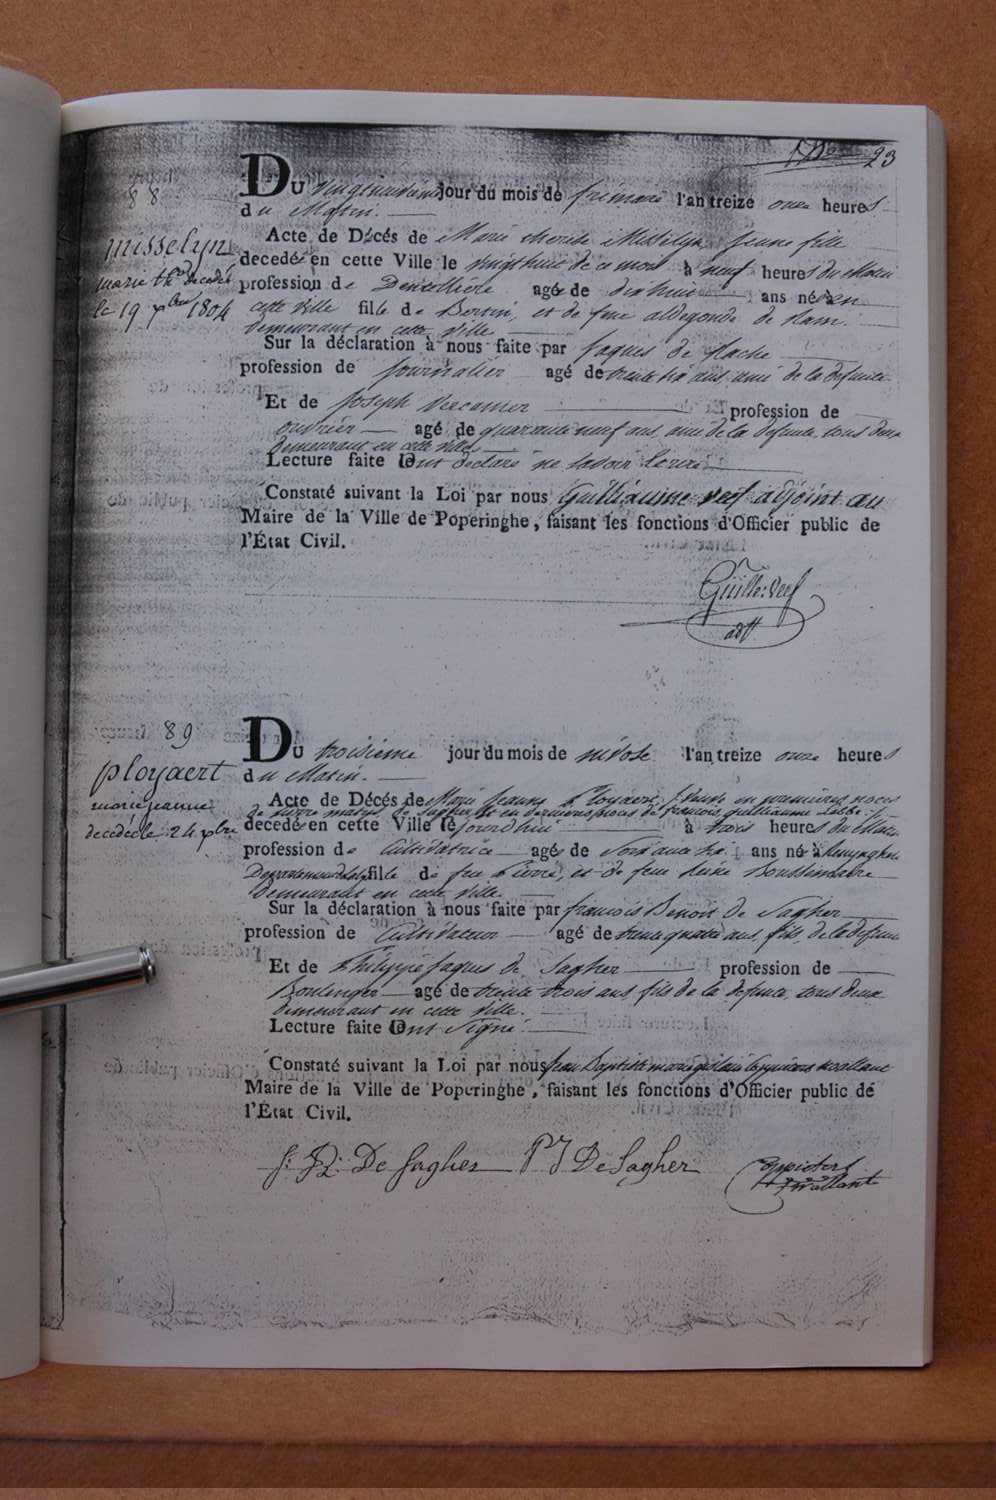 23
88
DU vingtneuvieme jour du mois de frimaire l'an treize onze heures
du Matin.
misselyn
marie th.se decedée
le 19 xbre 1804
Acte de Décés de Marie therese Misselyn, jeune fille
decedée en cette Ville le vingthuit de ce mois à neuf heures du Matin
profession de Dentelliere agée de dixhuit ans née en
cette ville fille de Bertin, et de feue aldegonde de ham.
demeurant en cette ville
Sur la déclaration à nous faite par Jaques de
profession de journalier agé de ans, ami de la defunte.
Et de Joseph Vercamer profession de
ouvrier agé de quarante neuf ans, ami de la defunte, tous deux
demeurant en cette ville
Lecture faite ont declaré ne savoir écrire
Constaté suivant la Loi par nous Guilliaume Verf adjoint au
Maire de la Ville de Poperinghe, faisant les fonctions d'Officier public de
l'État Civil.
Guille: Verf
adjt
89
DU troisieme jour du mois de nivose l'an treize onze heures
du Matin.
ployaert
marie jeanne
decedée le 24 xbre
Acte de Décés de Marie Jeanne Ployaert, Veuve en premieres noces
de Sagher, et en dernieres noces de francois guilliaume
decedée en cette Ville le jourdhui à trois heures du Matin
profession de Cultivatrice agée de soixante ans née à Reninghe
Departement de la Lys fille de feu Pierre, et de feue
demeurant en cette ville.
Sur la déclaration à nous faite par francois Benoit de Sagher
profession de Cultivateur agé de trente quatre ans, fils de la defunte
Et de Philippe Jaques de Sagher profession de
Boulenger agé de trente trois ans fils de la defunte, tous deux
demeurant en cette ville.
Lecture faite ont signé
Constaté suivant la Loi par nous Jean Baptiste marie
Maire de la Ville de Poperinghe, faisant les fonctions d'Officier public de
l'État Civil.
f: B: De Sagher PJ DeSagher